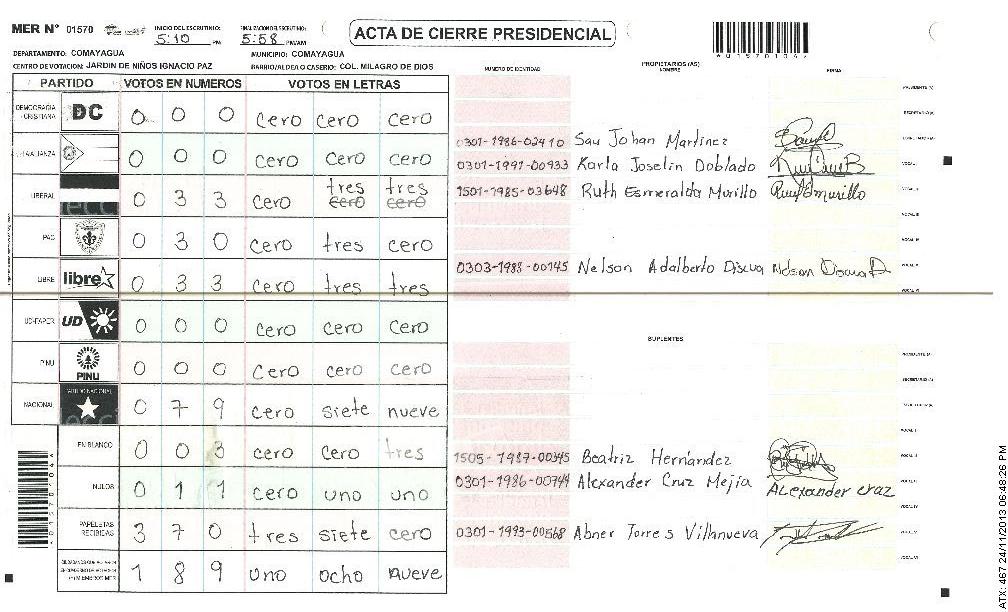 MER N° 01570 INICIO DEL ESCRUTINIO: 5:10 PM FINALIZACION DEL ESCRUTINIO: 5:58 PM/AM
ACTA DE CIERRE PRESIDENCIAL
DEPARTAMENTO: COMAYAGUA MUNICIPIO: COMAYAGUA
CENTRO DE VOTACION: JARDIN DE NIÑOS IGNACIO PAZ BARRIO/ALDEA O CASERIO: COL. MILAGRO DE DIOS
PARTIDO VOTOS EN NUMEROS VOTOS EN LETRAS
DEMOCRACIA CRISTIANA DC 0 0 0 cero cero cero
LA ALIANZA 0 0 0 cero cero cero
LIBERAL 0 3 3 cero cero tres cero tres
PAC 0 3 0 cero tres cero
LIBRE libre 0 3 3 cero tres tres
UD-FAPER UD 0 0 0 cero cero cero
PINU PINU 0 0 0 cero cero cero
NACIONAL PARTIDO NACIONAL 0 7 9 cero siete nueve
EN BLANCO 0 0 3 cero cero tres
NULOS 0 1 1 cero uno uno
PAPELETAS RECIBIDAS 3 7 0 tres siete cero
1 8 9 uno ocho nueve
NUMERO DE IDENTIDAD PROPIETARIOS (AS) NOMBRE FIRMA
0301-1986-02410 Sau Johan Martinez
0301-1991-00933 Karla Joselin Doblado
1501-1985-03648 Ruth Esmeralda Murillo
0303-1988-00145 Nelson Adalberto Discua Nelson Discua D
SUPLENTES
1505-1987-00345 Beatriz Hernández
0301-1986-00744 Alexander Cruz Mejia Alexander cruz
0301-1993-00568 Abner Torres Villanueva
ATX: 467 24/11/2013 06:48:26 PM